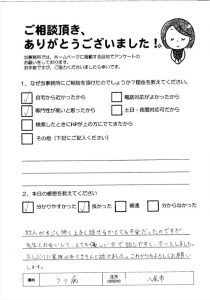 ご相談頂き、
ありがとうございました！。
当事務所では、ホームページに掲載する目的でアンケートの
お願いをしております。
お手数ですが、ご協力くださいましたら幸いです。
1、なぜ当事務所にご相談を頂けたのでしょうか？理由を教えてください。
自宅から近かったから
電話対応がよかったから
専門性が高いと思ったから
土日・夜間対応可だから
検索したときにHPが上の方にでてきたから
その他（下記にご記入ください）
2、本日の感想を教えてください
分かりやすかった
良かった
普通
分からなかった
対人がすごく怖く上手く話せるかとても不安だったのですが
先生とお会いして、とても優しい方で話しやすく、ホッとしました。
久しぶりに家族以外でたくさんと話せました。これからもよろしくお願い
します。
うつ病
八尾市